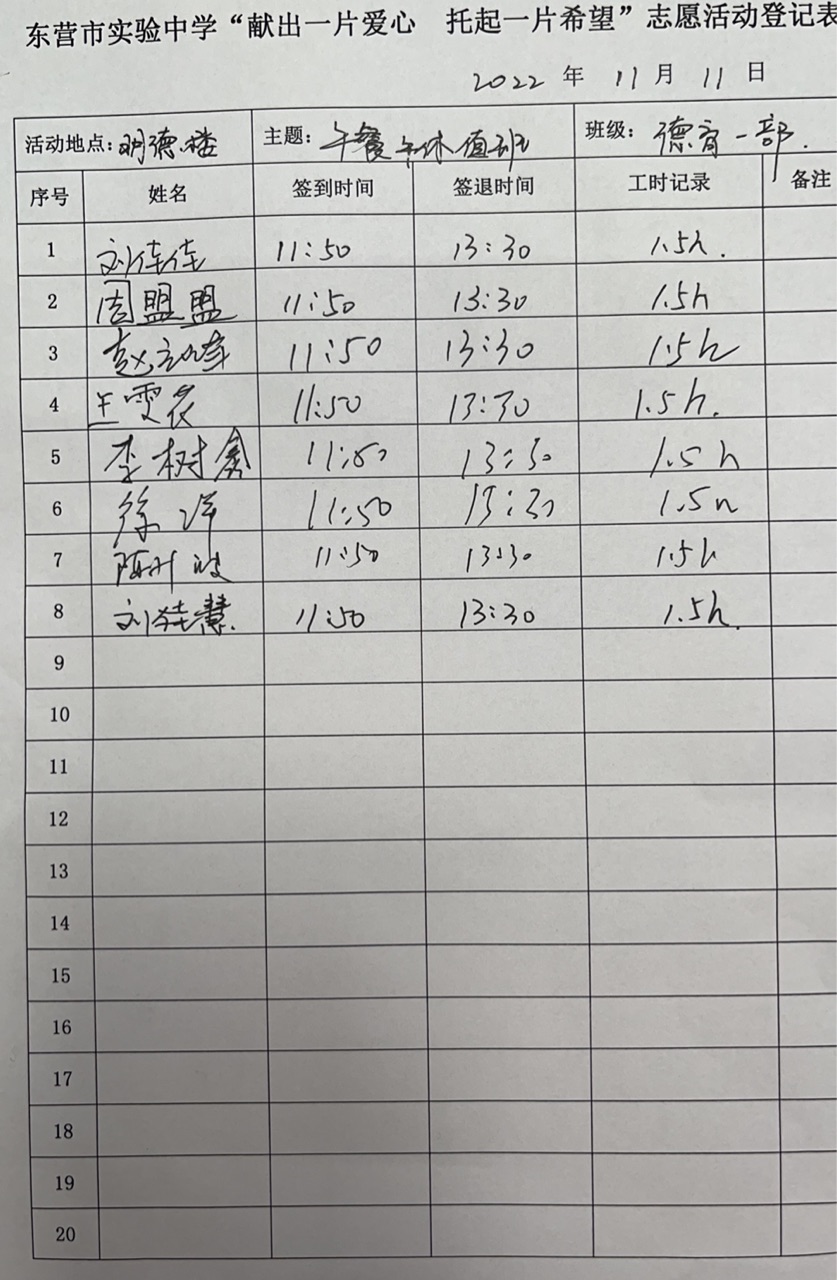 东营市实验中学“献出一片爱心 托起一片希望”志愿活动登记表
2022 年 11 月 11 日
活动地点:明德楼 主题:午餐午休值班 班级:德育一部.
序号 姓名 签到时间 签退时间 工时记录 备注
1 刘佳佳 11:50 13:30 1.5h.
2 周盟盟 11:50 13:30 1.5h
3 赵 11:50 13:30 1.5h
4 王雯 11:50 13:30 1.5h.
5 李树 11:50 13:30 1.5h
6 徐洋 11:50 13:30 1.5h
7 陈 11:50 13:30 1.5h
8 刘桂慧. 11:50 13:30 1.5h.
9
10
11
12
13
14
15
16
17
18
19
20